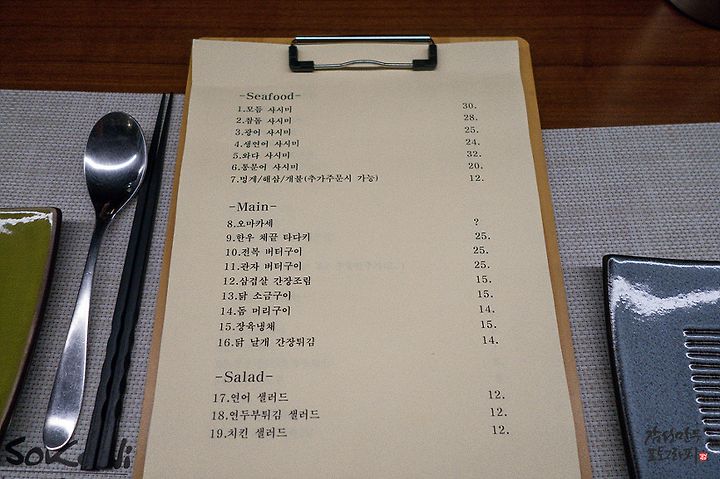 -Seafood-
1.모듬 사시미 30.
2.참돔 사시미 28.
3.광어 사시미 25.
4.생연어 사시미 24.
5.와다 사시미 32.
6.통문어 사시미 20.
7.멍게/해삼/개불(추가주문시 가능) 12.
-Main-
8.오마카세 ?
9.한우 채끝 타다키 25.
10.전복 버터구이 25.
11.관자 버터구이 25.
12.삼겹살 간장조림 15.
13.닭 소금구이 15.
14.돔 머리구이 14.
15.장육냉채 15.
16.닭 날개 간장튀김 14.
-Salad-
17.연어 샐러드 12.
18.연두부튀김 샐러드 12.
19.치킨 샐러드 12.